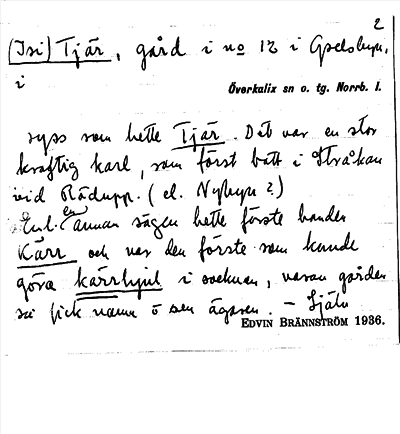 2
(Isi) Tjär, gård i no 12 i Gyelsbyn,
i
Överkalix sn o. tg. Norrb. l.
ryss som hette Tjär. Det var en stor
kraftig karl, som först bott i Stråkan
vid Rödupp. (el. Nybyn?)
Enl. en annan sägen hette förste bonden
Kärr och var den förste som kunde
göra kärrhjul i socknen, varav gården
så fick namn o sen ägaren. – Själv
EDVIN BRÄNNSTRÖM 1936.